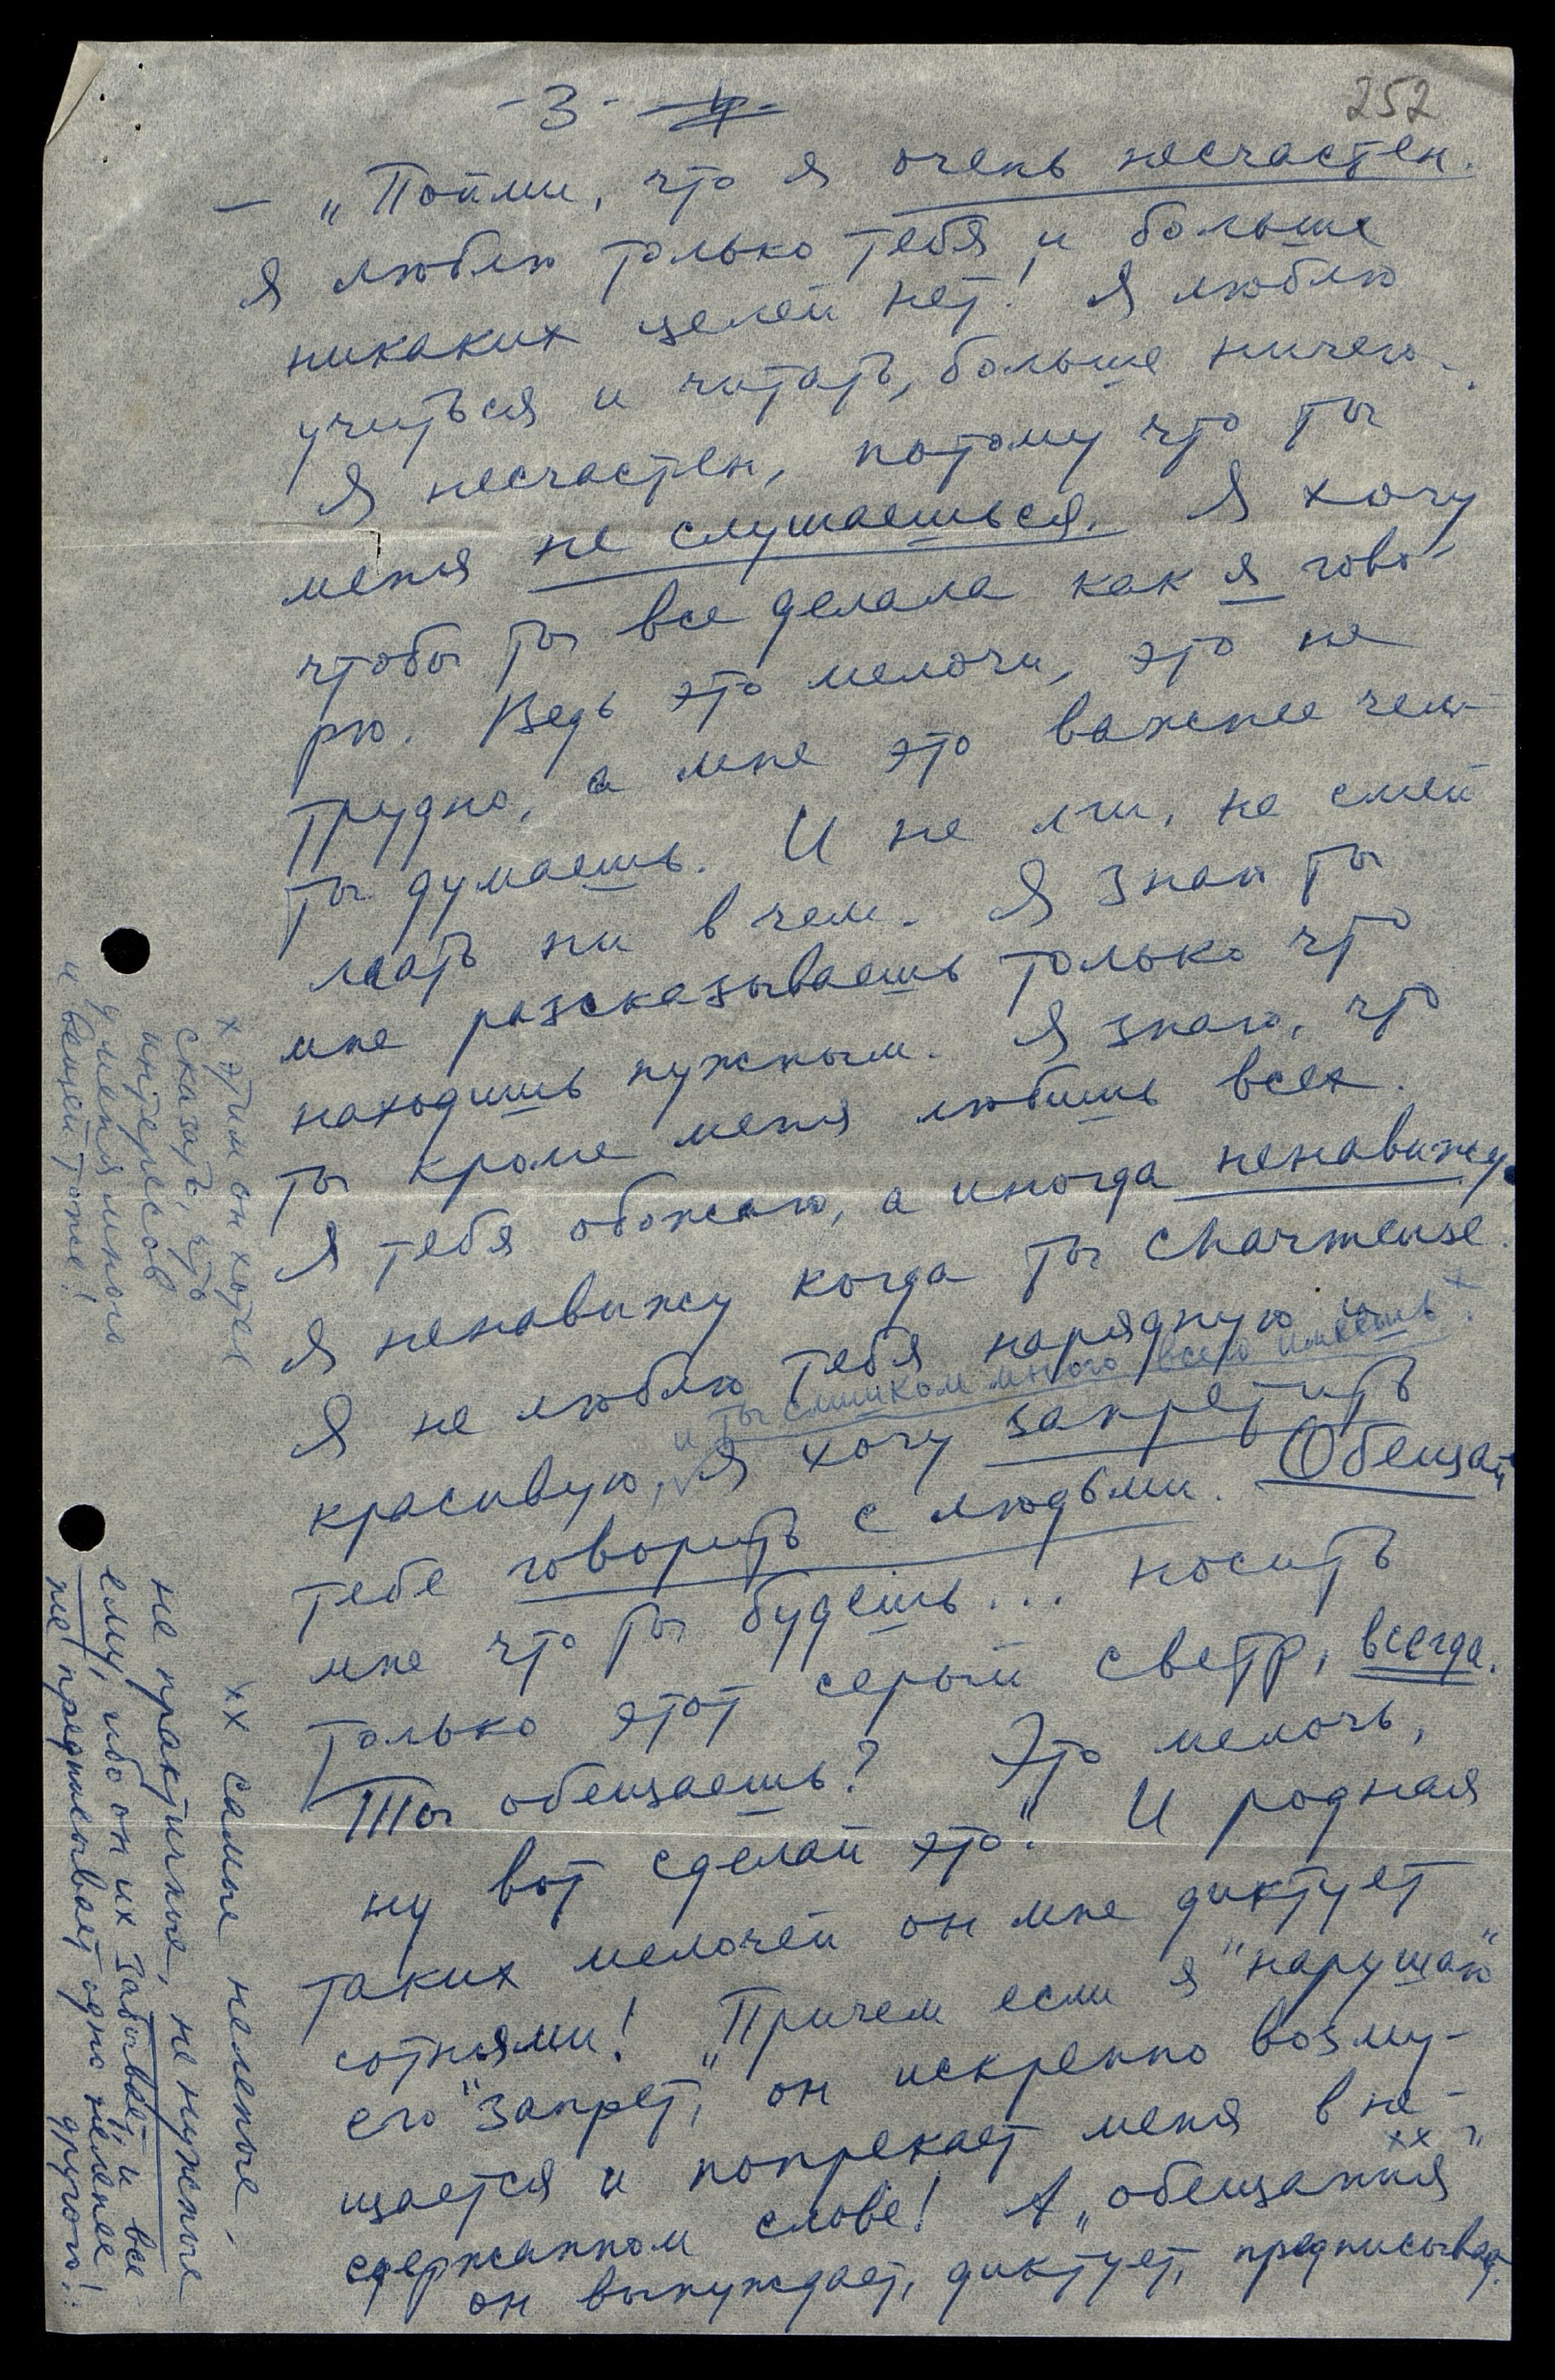 - 3 - - 4 -
252
— „Пойми, что я очень несчастен.
Я люблю только тебя и больше
никаких целей нет! Я люблю
учиться и читать, больше ничего.
Я несчастен, потому что ты
меня не слушаешься. Я хочу
чтобы ты все делала как я гово-
рю. Ведь это мелочи, это не
трудно, а мне это важнее чем
ты думаешь. И не лги, не смей
лгать ни в чем. Я знаю ты
мне разсказываешь только что
находишь нужным. Я знаю, что
ты кроме меня любишь всех.
Я тебя обожаю, а иногда ненавижу.
Я ненавижу когда ты charmeuse.
Я не люблю тебя нарядную и
и ты слишком много всего имеешь x.
красивую, Я хочу запретить
тебе говорить с людьми. Обещай
мне что ты будешь... носить
только этот серый светр, всегда.
Ты обещаешь? Это мелочь,
ну вот сделай это." И родная
таких мелочей он мне диктует
сотнями! Причем если я "нарушаю"
его „запрет," он искренно возму-
щается и попрекает меня в не-
сдержанном слове! А „обещания" xx
он вынуждает, диктует, предписывает.
x этим он хотел
сказать, что
интересов
у меня много
и вещей тоже!
xx самые нелепые,
не практичные, не нужные
ему, ибо он их забывает и все
же предписывает одно нелепее
другого!